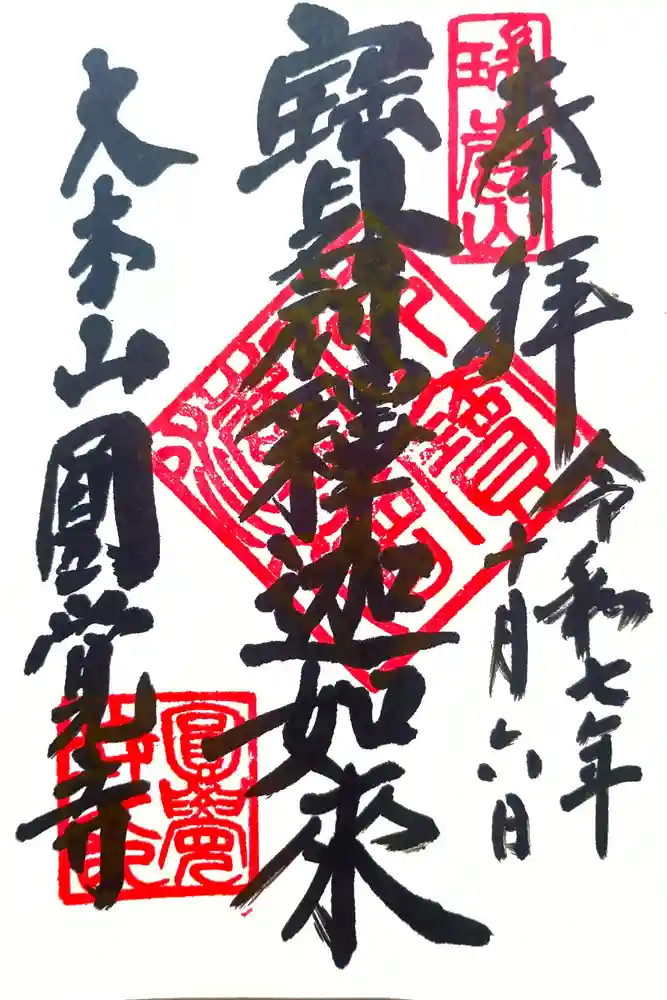 奉拝
令和七年
十月六日
寶冠釋迦如來
大本山圓覚寺
瑞鹿山